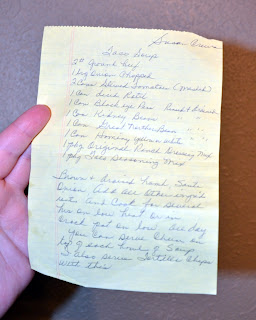 Susan
Taco Soup
2# Ground Beef
1 Lg Onion Chopped
2 Cans Stewed Tomatoes (Mashed)
1 Can Rotel
1 Can Black eye Peas Rinsed & Drained
1 Can Kidney Beans "
1 Can Great Northern Beans "
1 Can Hominy yellow or white
1 pkg Original Ranch Dressing Mix
1 pkg Taco Seasoning Mix
Brown & drain meat, Saute
Onion Add all other ingred
ients And Cook for several
hrs on low heat or in
Crock Pot on low all day
You Can Serve Cheese on
top of each bowl of Soup
I also serve Tortilla Chips
with this